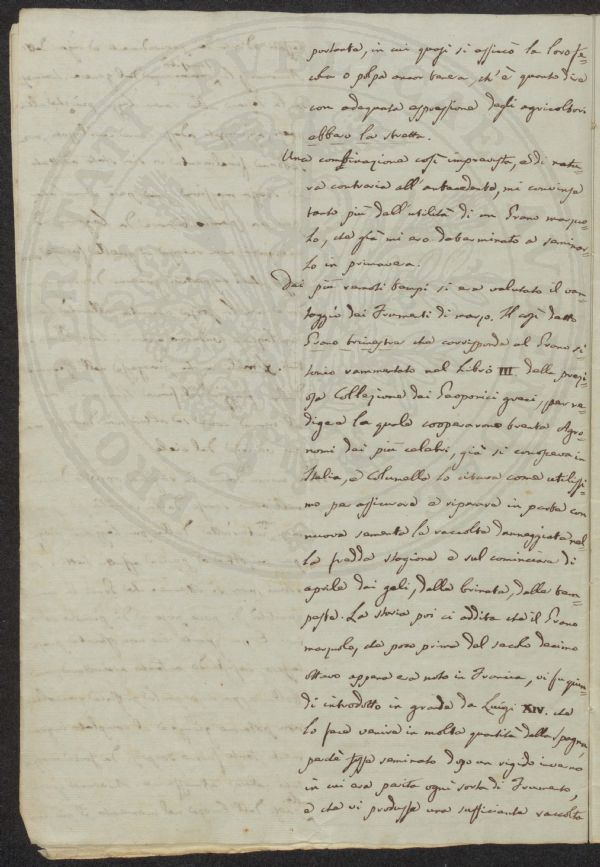 portanta, in cui quasi si assiccò la loro fe-
cola o polpa ancor tenera, ch'è quanto dire
con adequata espressione degli agricoltori
ebbero la stretta.
Una combinazione così impreveduta, e di natu-
ra contraria all'antecedente, mi convinse
tanto più dell'utilità di un Grano marzuo-
lo, che già mi ero determinato a seminar-
lo in primavera.
Dai più remoti tempi si era valutato il van-
taggio dei Frumenti di marzo. Il così detto
Grano trimestre che corrisponde al Grano si
tonio rammentato nel Libro III della prezi-
osa Collezione dei Geoponici greci, per re-
digere la quale cooperarono trenta Agro-
nomi dei più celebri, già si conosceva in
Italia, e Columella lo citava come utilissi-
mo per assicurare e riparare in parte con
nuova sementa la raccolta danneggiata nel-
la fredda stagione e sul cominciare di
aprile dai geli, dalla brinata, dalle tem-
peste. La storia poi ci addita che il Grano
marzuolo, che poco prima del secolo decimo
ottavo appena era noto in Francia, vi fu quin-
di introdotto in grande da Luigi XIV. che
lo fece venire in molta quantità dalla Spagna,
perchè fosse seminato dopo un rigido inverno
in cui era perita ogni sorta di Frumento,
e che vi produsse una sufficiente raccolta